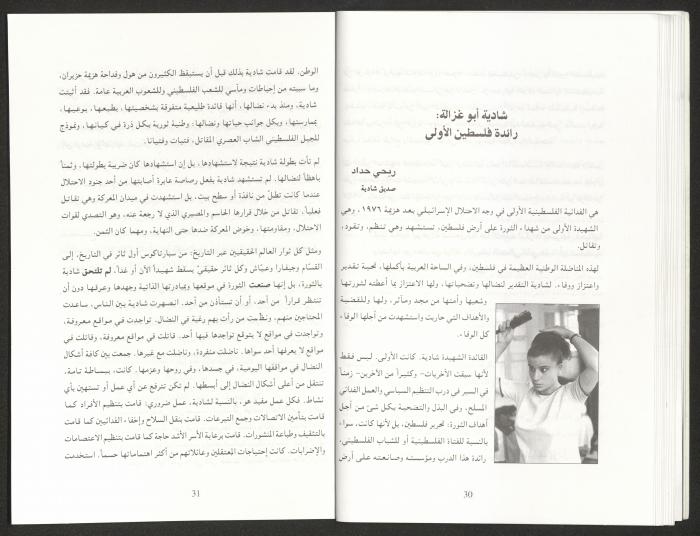 شادية أبو غزالة:
رائدة فلسطين الأولى
ربحي حداد
صديق شادية
هي الفدائية الفلسطينية الأولى في وجه الاحتلال الإسرائيلي بعد هزيمة ١٩٧٦، وهي
الشهيدة الأولى من شهداء الثورة على أرض فلسطين، تستشهد وهي تنظم، وتقود،
وتقاتل.
لهذه المناضلة الوطنية العظيمة في فلسطين، وفي الساحة العربية بأكملها، تحية تقدير
واعتزاز ووفاء. لشادية التقدير لنضالها وتضحياتها، ولها الاعتزاز بما أعطته لثورتها
وشعبها وأمتها من مجد ومآثر، ولها وللقضية
والأهداف التي حاربت واستشهدت من أجلها الوفاء
كل الوفاء.
القائدة الشهيدة شادية. كانت الأولى. ليس فقط
لأنها سبقت الأخريات- وكثيراً من الآخرين- زمناً
في السير في درب التنظيم السياسي والعمل الفدائي
المسلح، وفي البذل والتضحية بكل شئ من أجل
أهداف الثورة: تحرير فلسطين، بل لأنها كانت، سواء
بالنسبة للفتاة الفلسطينية أو للشباب الفلسطيني،
رائدة هذا الدرب ومؤسسته وصانعته على أرض
30
الوطن. لقد قامت شادية بذلك قبل أن يستيقظ الكثيرون من هول وفداحة هزيمة حزيران،
وما سببته من إحباطات ومآسي للشعب الفلسطيني وللشعوب العربية عامة. فقد أثبتت
شادية، ومنذ بدء نضالها، أنها قائدة طليعية متفوقة بشخصيتها، بطبعها، بوعيها،
بممارستها، وبكل جوانب حياتها ونضالها: وطنية ثورية بكل ذرة في كيانها، ونموذج
للجيل الفلسطيني الشاب العصري المقاتل، فتيات وفتيانا.
لم تأت بطولة شادية نتيجة لاستشهادها، بل إن استشهادها كان ضريبة بطولتها، وثمناً
باهظاً لنضالها. لم تستشهد شادية بفعل رصاصة عابرة أصابتها من أحد جنود الاحتلال
عندما كانت تطل من نافذة أو سطح بيت، بل استشهدت في ميدان المعركة وهي تقاتل
فعلياً، تقاتل من خلال قرارها الحاسم والمصيري الذي لا رجعة عنه، وهو التصدي لقوات
الاحتلال، ومقاومتها، وخوض المعركة ضدها حتى النهاية، ومهما كان الثمن.
ومثل كل ثوار العالم الحقيقيين عبر التاريخ، من سبارتاكوس أول ثائر في التاريخ، إلى
القسّام وجيفارا وعيّاش وكل ثائر حقيقيّ يسقط شهيداً الآن أو غداً، لم تلتحق شادية
بالثورة، بل إنها صنعت الثورة في موقعها وبمبادرتها الذاتية وجهدها وعرفها دون أن
تنتظر قراراً من أحد، أو أن تستأذن من أحد. انصهرت شادية بين الناس، ساعدت
المحتاجين منهم، ونظّمت من رأت بهم رغبة في النضال. تواجدت في مواقع معروفة،
وتواجدت في مواقع لا يتوقع تواجدها فيها أحد. قاتلت في مواقع معروفة، وقاتلت في
مواقع لا يعرفها أحد سواها. ناضلت منفردة، وناضلت مع غيرها. جمعت بين كافة أشكال
النضال في مواقفها اليومية، في جسدها، وفي روحها وعزمها. كانت، ببساطة تامة،
تنتقل من أعلى أشكال النضال إلى أبسطها. لم تكن تترفع عن أي عمل أو تستهين بأي
نشاط. فكل عمل مفيد هو، بالنسبة لشادية، عمل ضروري: قامت بتنظيم الأفراد كما
قامت بتأمين الاتصالات وجمع التبرعات. قامت بنقل السلاح وإخفاء الفدائيين كما قامت
بالتثقيف وطباعة المنشورات. قامت برعاية الأسر الأشد حاجة كما قامت بتنظيم الاعتصامات
والإضرابات. كانت إحتياجات المعتقلين وعائلاتهم من أكثر اهتماماتها حسماً، استخدمت
31